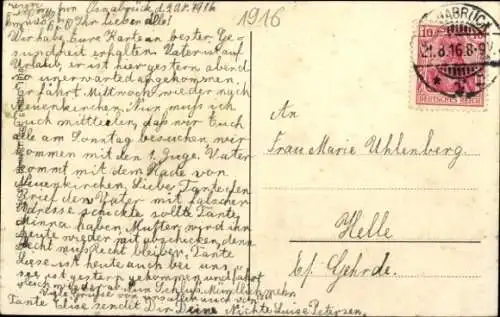 Osnabrück, d. 20.8.1916
1916
Ihr Lieben alle!
Wir habe Eure Karte an bester Ge-
sundheit erhalten. Vater ist auf
Urlaub, er ist hier gestern abend
so unerwartet angekommen,
er fährt Mittwoch wieder nach
Neuenkirchen. Nun muss ich
Euch mitteilen, dass wir Euch
alle am Sonntag besuchen, wir
kommen mit den 1. Zuge. Vater
kommt mit dem Rade von
Neuenkirchen. Liebe Tante, den
Brief den Vater mit falscher
Adresse schickte sollte Tante
Minna haben, Mutter wird ihn
heute wieder mit abschicken, denn
Recht muss Recht bleiben, Tante
Elise ist heute auch bei uns
sie ist gestern gekommen und fährt
gleich wieder ab. Nun Schluss,
Viele Grüsse von uns allen und
Tante Elise sendet Dir Deine Nichte Luise Petersen.
OSNABRÜCK
21.8.16.8-9V.
10
DEUTSCHES REICH
An
Frau Marie Uhlenberg.
Helle
b/ Gehrde.